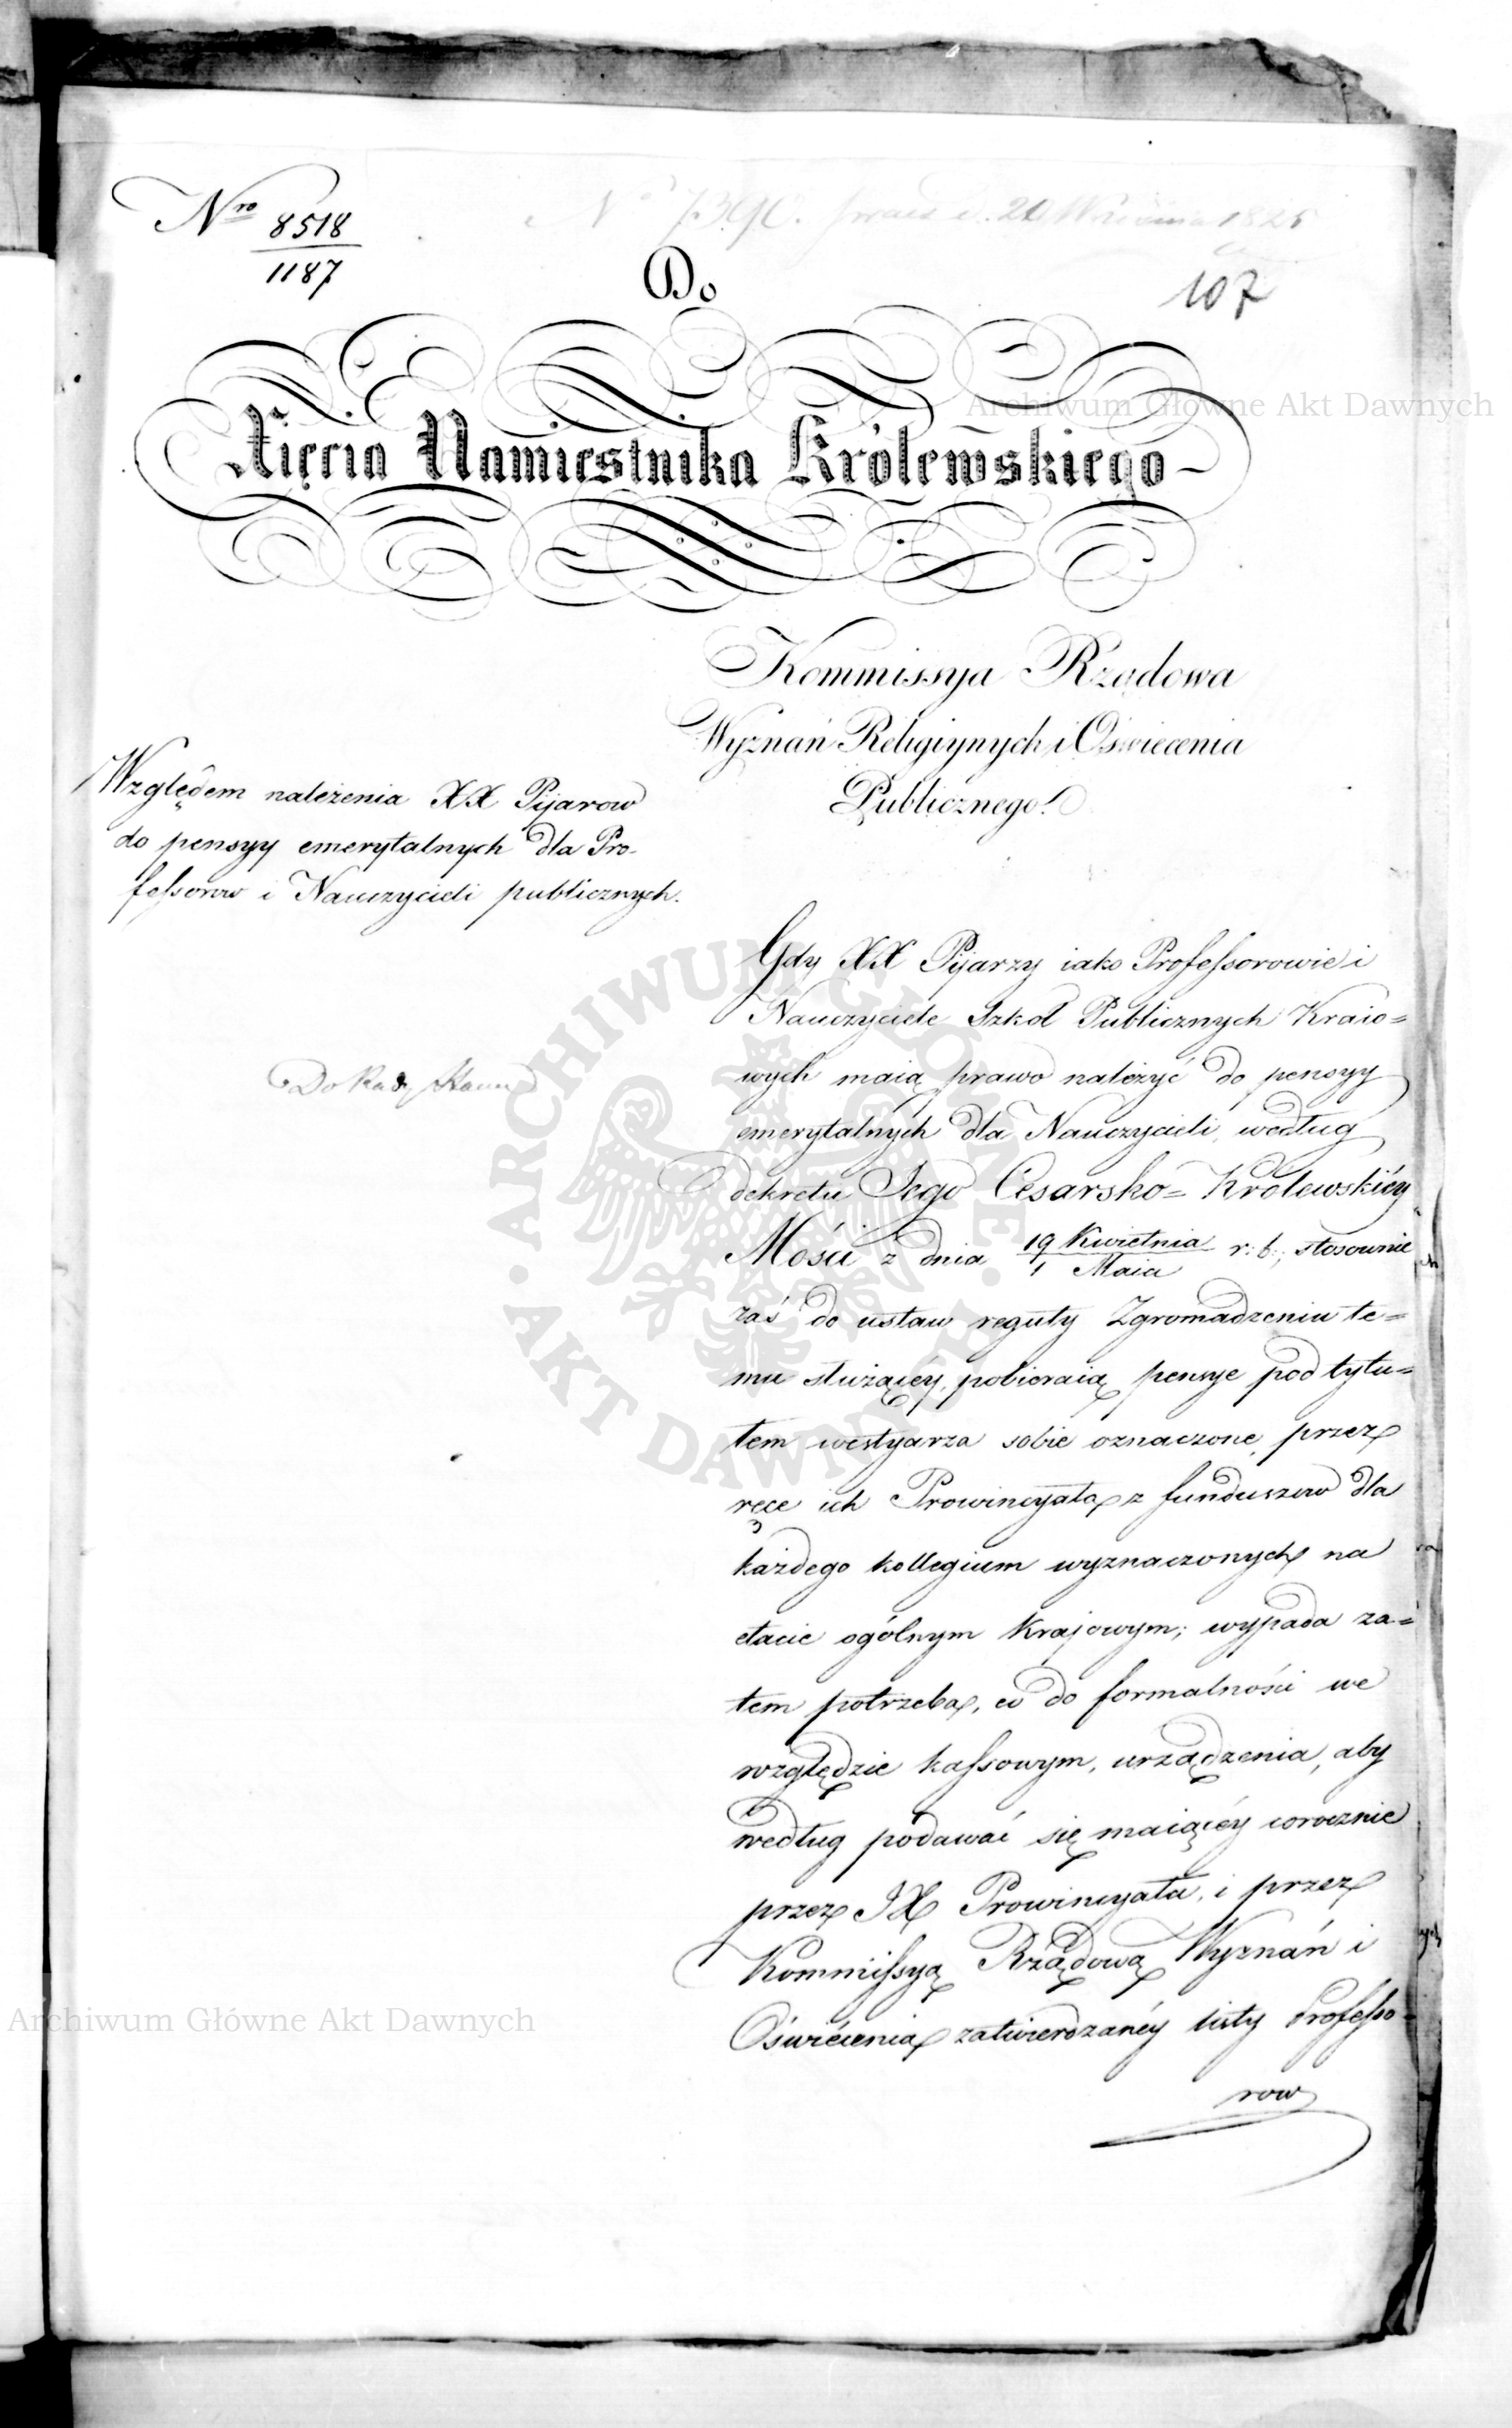 Nro 8518
1187
107
Do
Xięcia Namiestnika Królewskiego
Kommissya Rządowa
Wyznań Religiynych i Oświecenia
Publicznego.
Względem należenia XX Pijarow
do pensyy emerytalnych dla Pro-
fessorow i Nauczycieli publicznych.
Do Rady Stanu
Gdy XX Pijarzy iako Professorowie i
Nauczyciele Szkół Publicznych Kraio=
wych maią prawo należyć do pensyy
emerytalnych dla Nauczycieli, według
dekretu Jego Cesarsko=Królewskiéy
Mości z dnia 19 Kwietnia / 1 Maia r: b:, stosownie
zaś do ustaw reguły Zgromadzeniu te=
mu służącéy, pobieraią pensye pod tytu=
łem westyarza sobie oznaczone, przez
ręce ich Prowincyała z funduszow dla
każdego kollegium wyznaczonych na
etacie ogólnym Krajowym; wypada za=
tem potrzeba, co do formalności we
względzie kassowym, urządzenia, aby
według podawać się maiącéy corocznie
przez JX Prowincyała, i przez
Kommissyą Rządową Wyznań i
Oświécenia zatwierdzanéy listy Professo-
row
Archiwum Główne Akt Dawnych
ARCHIWUM GŁÓWNE AKT DAWNYCH
Archiwum Główne Akt Dawnych